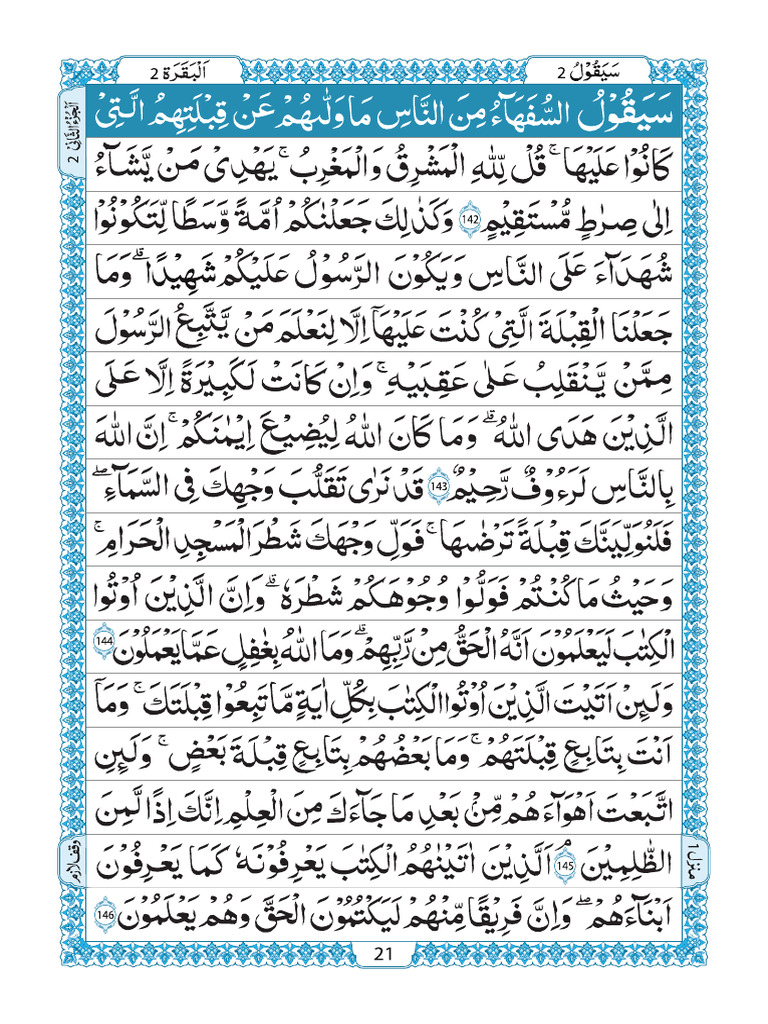 سَيَقُوْلُ 2
اَلْبَقَرَة 2
اَلْجُزْءُ الثَّانِیْ 2
سَيَقُوْلُ السُّفَهَآءُ مِنَ النَّاسِ مَا وَلّٰىهُمْ عَنْ قِبْلَتِهِمُ الَّتِیْ
كَانُوْا عَلَيْهَا ؕ قُلْ لِّلّٰهِ الْمَشْرِقُ وَالْمَغْرِبُ ؕ يَهْدِیْ مَنْ يَّشَآءُ
اِلٰى صِرَاطٍ مُّسْتَقِيْمٍ 142 وَكَذٰلِكَ جَعَلْنٰكُمْ اُمَّةً وَّسَطًا لِّتَكُوْنُوْا
شُهَدَآءَ عَلَى النَّاسِ وَيَكُوْنَ الرَّسُوْلُ عَلَيْكُمْ شَهِيْدًا ؕ وَمَا
جَعَلْنَا الْقِبْلَةَ الَّتِیْ كُنْتَ عَلَيْهَآ اِلَّا لِنَعْلَمَ مَنْ يَّتَّبِعُ الرَّسُوْلَ
مِمَّنْ يَّنْقَلِبُ عَلٰى عَقِبَيْهِ ؕ وَاِنْ كَانَتْ لَكَبِيْرَةً اِلَّا عَلَى
الَّذِيْنَ هَدَى اللّٰهُ ؕ وَمَا كَانَ اللّٰهُ لِيُضِيْعَ اِيْمَانَكُمْ ؕ اِنَّ اللّٰهَ
بِالنَّاسِ لَرَءُوْفٌ رَّحِيْمٌ 143 قَدْ نَرٰى تَقَلُّبَ وَجْهِكَ فِی السَّمَآءِ ۚ
فَلَنُوَلِّيَنَّكَ قِبْلَةً تَرْضٰىهَا ؕ فَوَلِّ وَجْهَكَ شَطْرَ الْمَسْجِدِ الْحَرَامِ ؕ
وَحَيْثُ مَا كُنْتُمْ فَوَلُّوْا وُجُوْهَكُمْ شَطْرَهٗ ؕ وَاِنَّ الَّذِيْنَ اُوْتُوا
الْكِتٰبَ لَيَعْلَمُوْنَ اَنَّهُ الْحَقُّ مِنْ رَّبِّهِمْ ؕ وَمَا اللّٰهُ بِغَافِلٍ عَمَّا يَعْمَلُوْنَ 144
وَلَئِنْ اَتَيْتَ الَّذِيْنَ اُوْتُوا الْكِتٰبَ بِكُلِّ اٰيَةٍ مَّا تَبِعُوْا قِبْلَتَكَ ۚ وَمَآ
اَنْتَ بِتَابِعٍ قِبْلَتَهُمْ ۚ وَمَا بَعْضُهُمْ بِتَابِعٍ قِبْلَةَ بَعْضٍ ؕ وَلَئِنِ
اتَّبَعْتَ اَهْوَآءَهُمْ مِّنْۢ بَعْدِ مَا جَآءَكَ مِنَ الْعِلْمِ اِنَّكَ اِذًا لَّمِنَ
الظّٰلِمِيْنَ ۘ 145 اَلَّذِيْنَ اٰتَيْنٰهُمُ الْكِتٰبَ يَعْرِفُوْنَهٗ كَمَا يَعْرِفُوْنَ
اَبْنَآءَهُمْ ؕ وَاِنَّ فَرِيْقًا مِّنْهُمْ لَيَكْتُمُوْنَ الْحَقَّ وَهُمْ يَعْلَمُوْنَ 146
منزل 1
وقف لازم
21